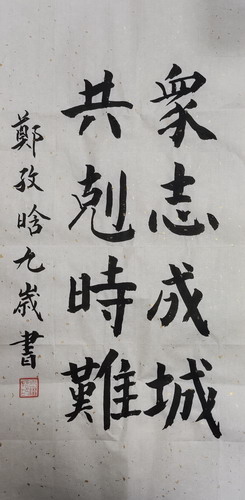 眾志成城
共剋時難
鄭孜晗九歲書